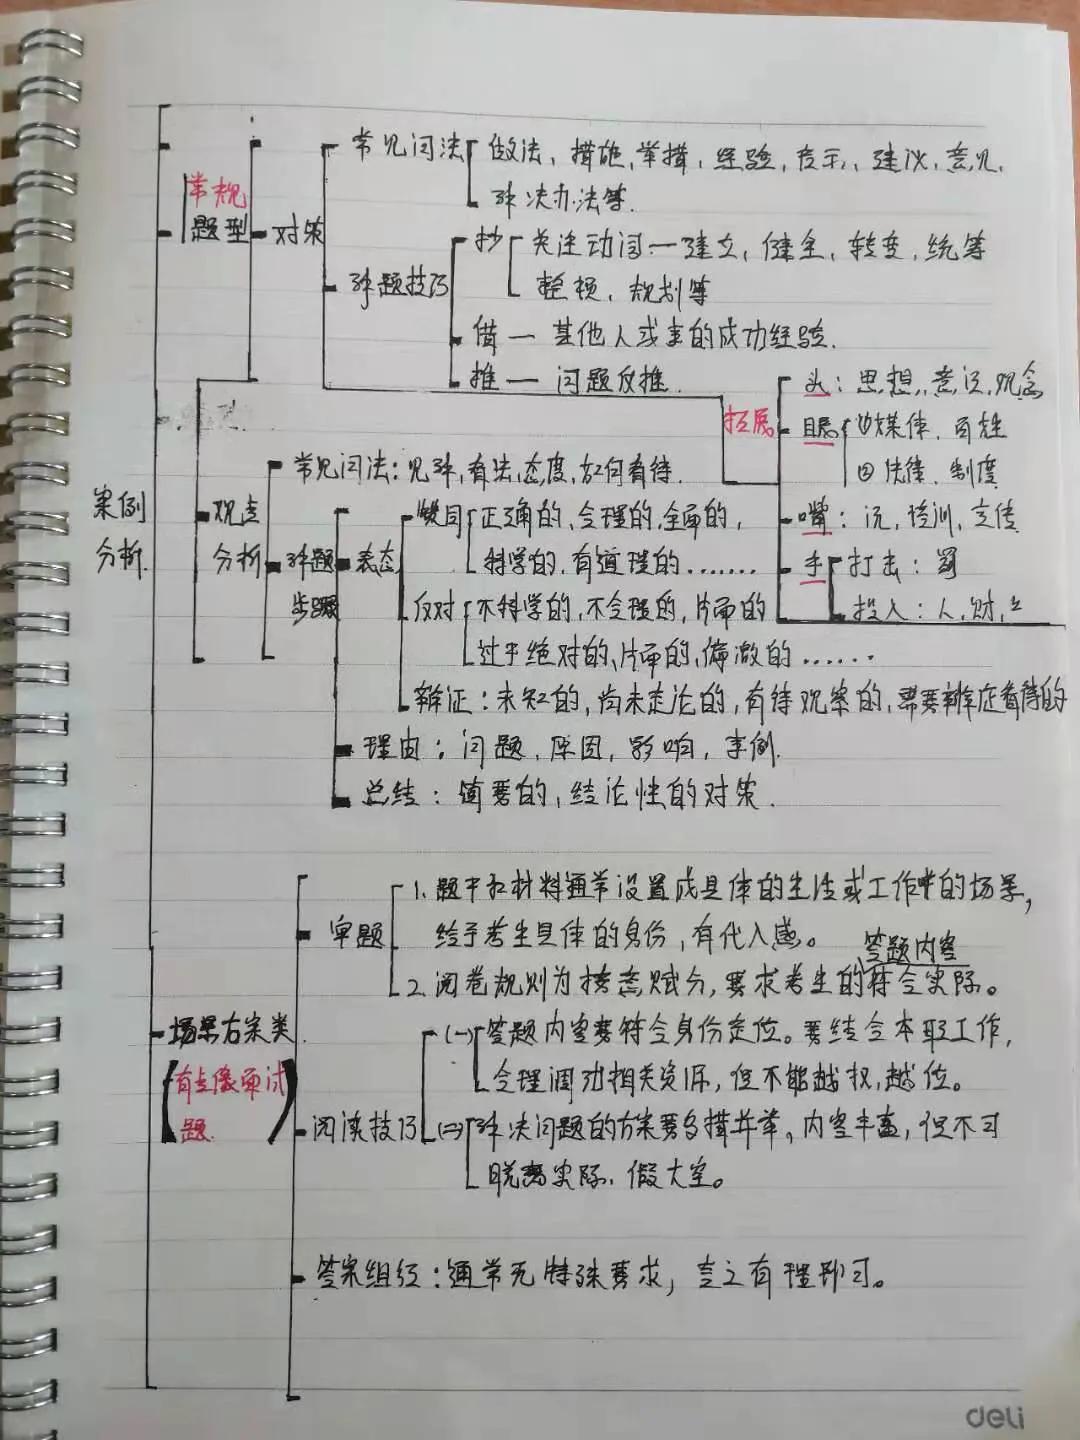 常见问法
做法、措施、举措、经验、启示、建议、意见、
解决办法等.
常规
题型
对策
抄
关注动词一建立,健全,转变,统筹
整顿、规划等
解题技巧
借一 其他人或事的成功经验.
推一 问题反推.
拓展
头:思想,意识,观念
眼
①媒体、百姓
②法律、制度
嘴:说,培训,宣传
手
打击:罚
投入:人,财,
案例
分析.
观点
分析
常见问法:见解,有法,态度,如何看待.
解题
步骤
表态
赞同
正确的、合理的,全面的,
科学的,有道理的.......
反对
不科学的,不合理的,片面的
过于绝对的、片面的,偏激的......
辩证:未知的,尚未定论的,有待观察的,需要辩证看待的
理由:问题,原因,影响,事例.
总结:简要的,结论性的对策.
审题
1.题干和材料通常设置成具体的生活或工作中的场景,
给予考生具体的身份,有代入感。
答题内容
2.阅卷规则为按意赋分,要求考生的符合实际。
场景方案类
(有点像面试
题.)
阅读技巧
(一)答题内容要符合身份定位。要结合本职工作,
合理调动相关资源,但不能越权,越位。
(二)解决问题的方案要多措并举,内容丰富,但不可
脱离实际、假大空。
答案组织:通常无特殊要求,言之有理即可。
deli